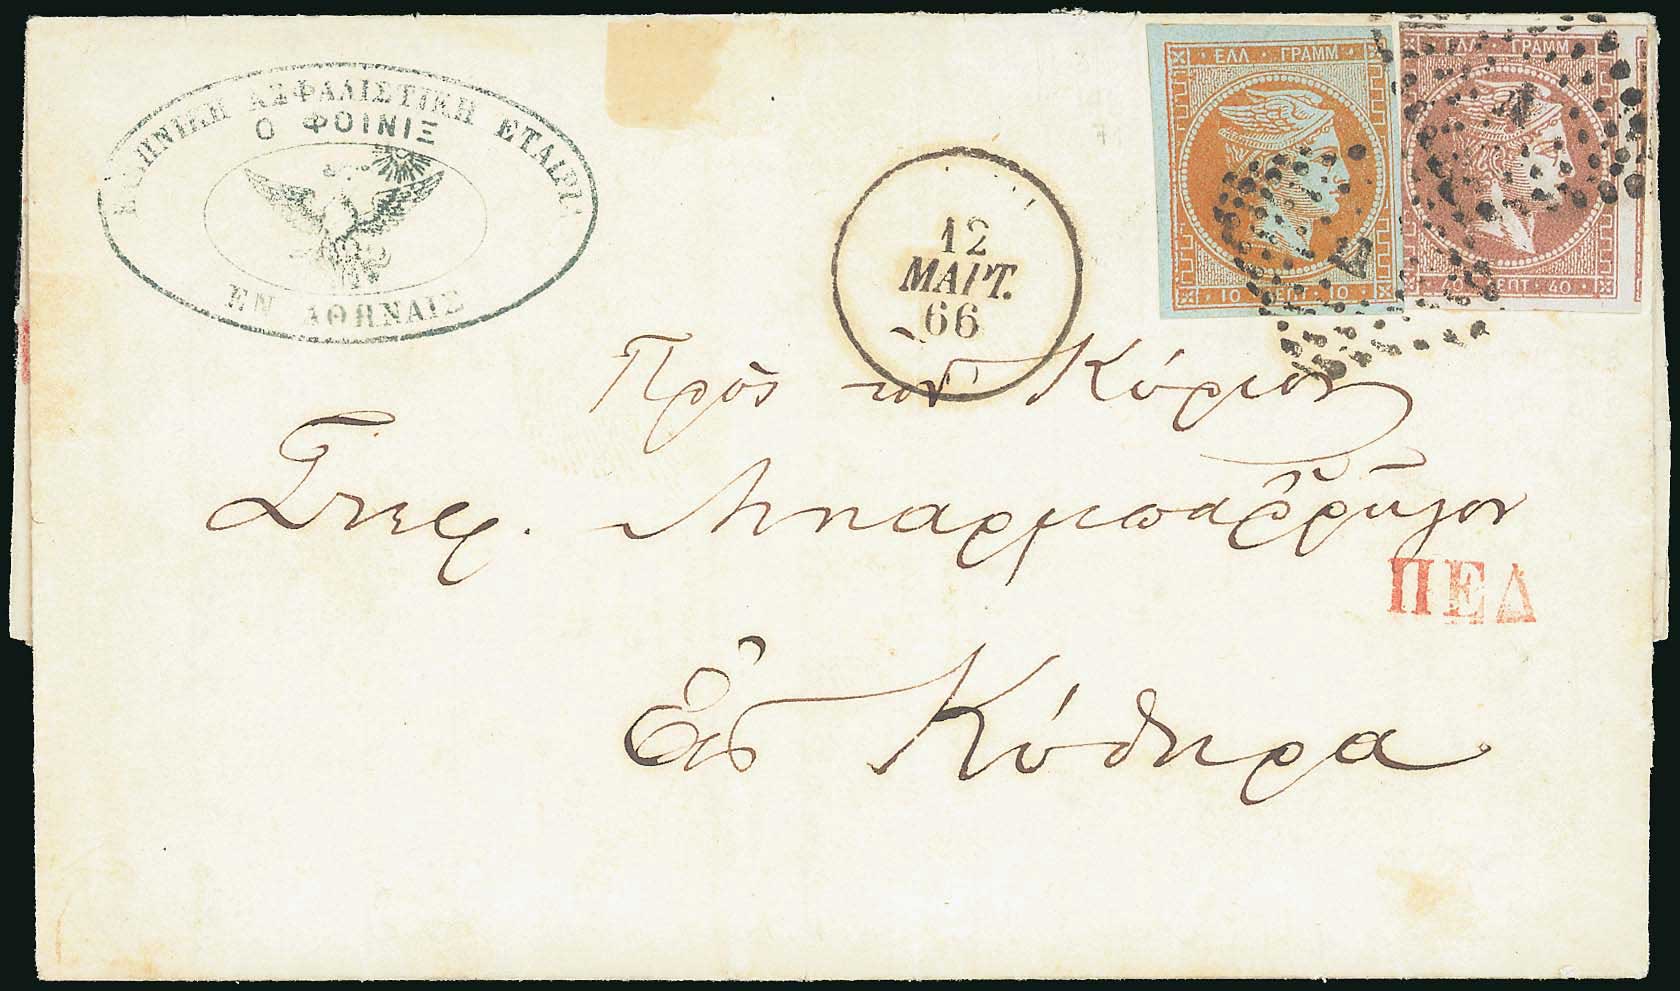 ΕΛΛΗΝΙΚΗ ΑΣΦΑΛΙΣΤΙΚΗ ΕΤΑΙΡΙΑ
Ο ΦΟΙΝΙΞ
ΕΝ ΑΘΗΝΑΙΣ
12
ΜΑΡΤ.
66
ΕΛΛ · ΓΡΑΜΜ
10 ΛΕΠΤ 10
ΕΛΛ · ΓΡΑΜΜ
40 ΛΕΠΤ 40
Πρὸς τον Κύριον
ΠΕΔ
Εἰς Κύθηρα